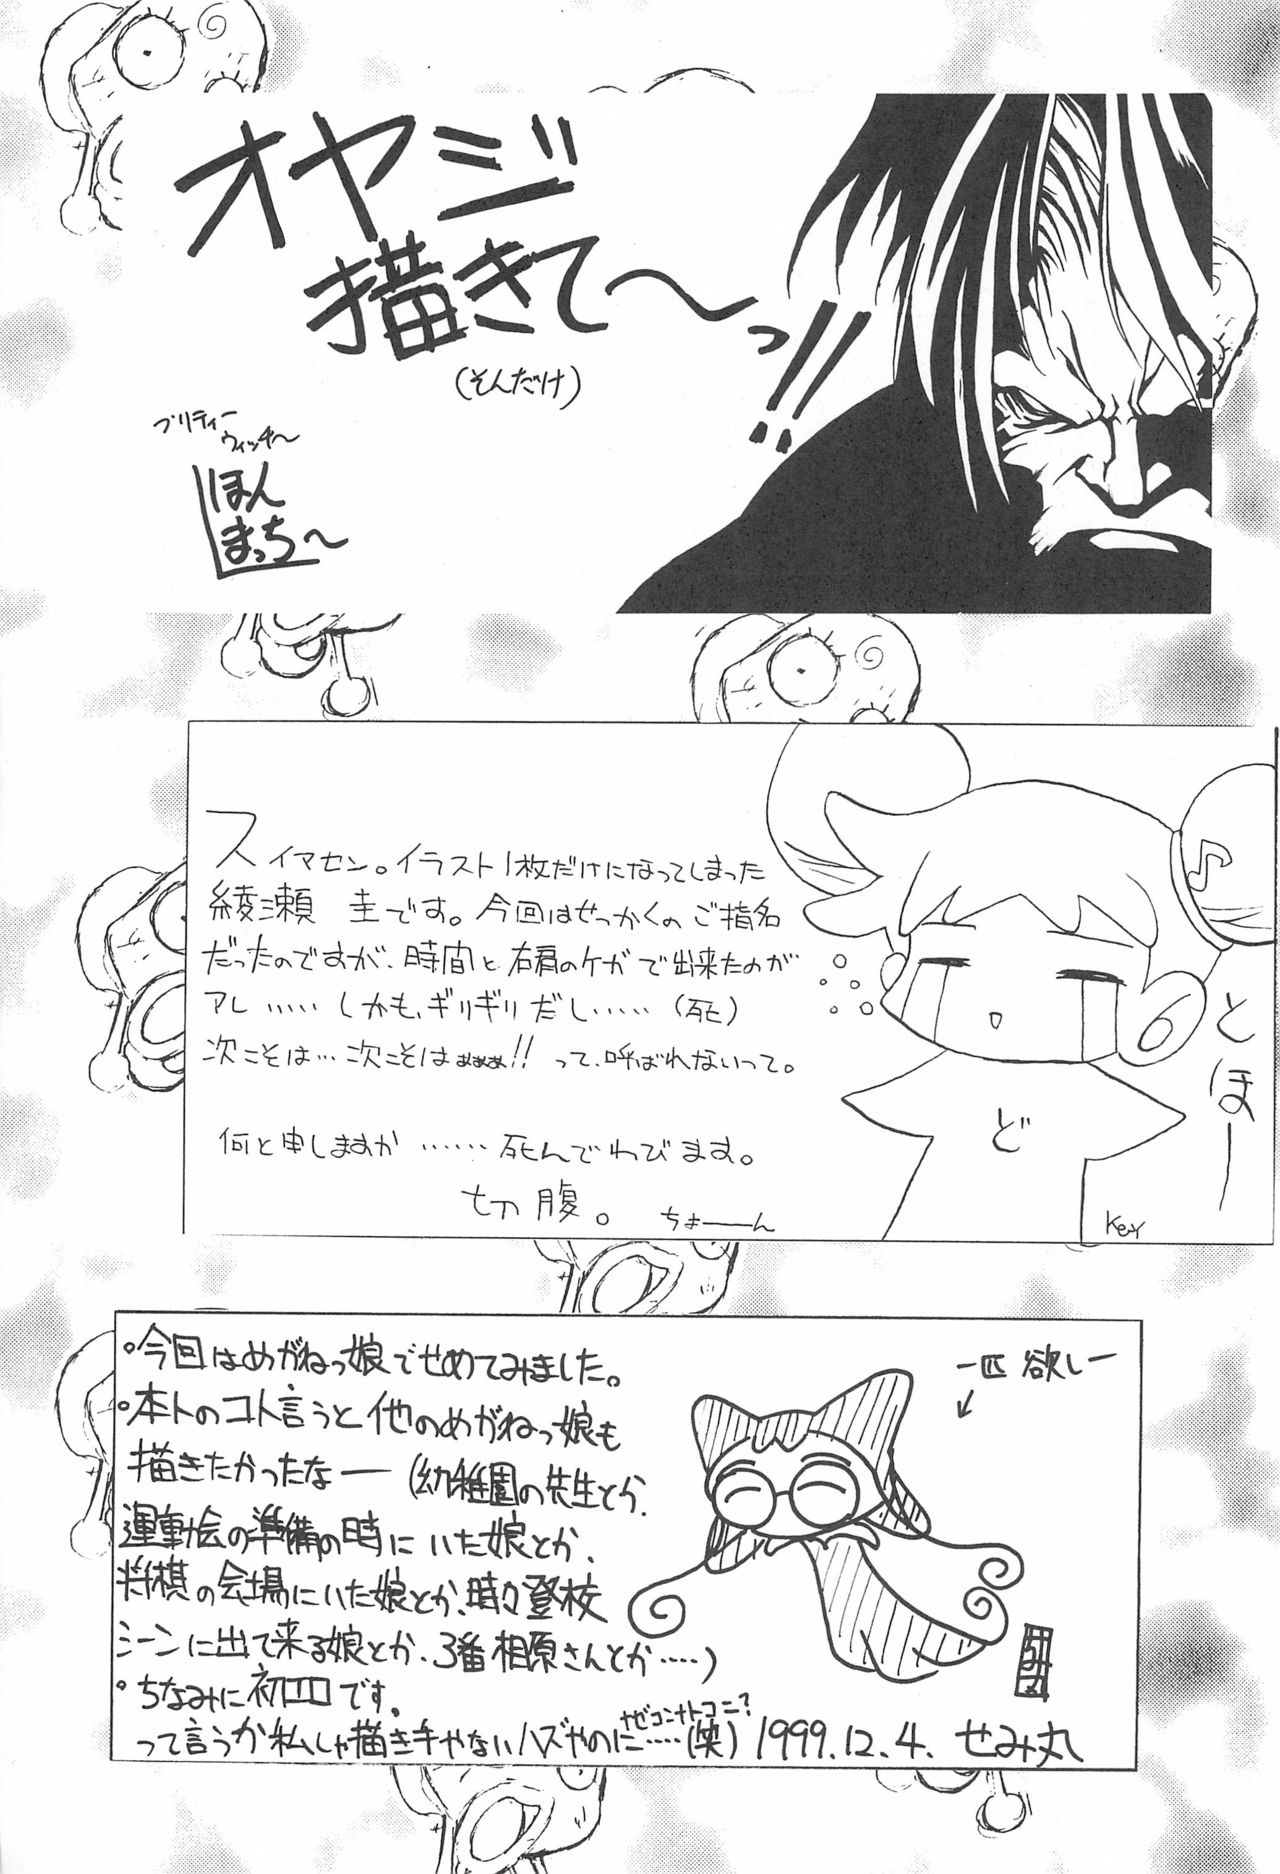 オヤジ
描きて〜っ!!
(そんだけ)
プリティー
ウィッチ〜
ほん
まっち〜
スイマセン。イラスト1枚だけになってしまった
綾瀬 圭です。今回はせっかくのご指名
だったのですが、時間と右肩のケガで出来たのが
アレ…… しかも、ギリギリだし…… (死)
次こそは…次こそはぁぁぁぁ!! って、呼ばれないって。
何と申しますか ……… 死んでわびます。
切腹。 ちょーーん
とほー
ど
Key
。今回はめがねっ娘でせめてみました。
。本トのコト言うと他のめがねっ娘も
描きたかったなー (幼稚園の先生とか、
運動会の準備の時にいた娘とか、
将棋の会場にいた娘とか、時々登校
シーンに出て来る娘とか、3番相原さんとか……)
。ちなみに初エロです。
って言うか私しゃ描き手やないハズやのに……(笑) 1999.12.4. せみ丸
ナゼコンナトコニ?
一匹 欲しー